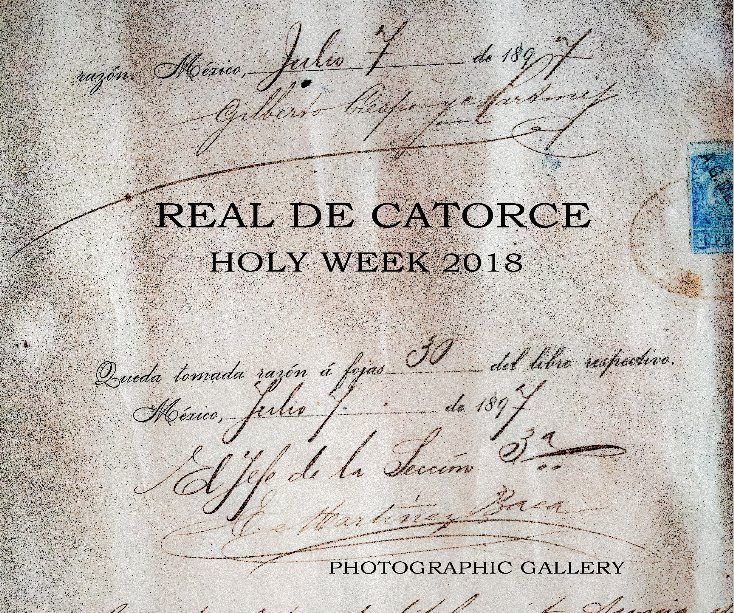 razón. México, Julio 7 de 1897
Gilberto Crespo y Martínez
REAL DE CATORCE
HOLY WEEK 2018
Queda tomada razón á fojas 30 del libro respectivo.
México, Julio 7. de 1897
El Jefe de la Sección 3ª
E. Martínez Baca
PHOTOGRAPHIC GALLERY